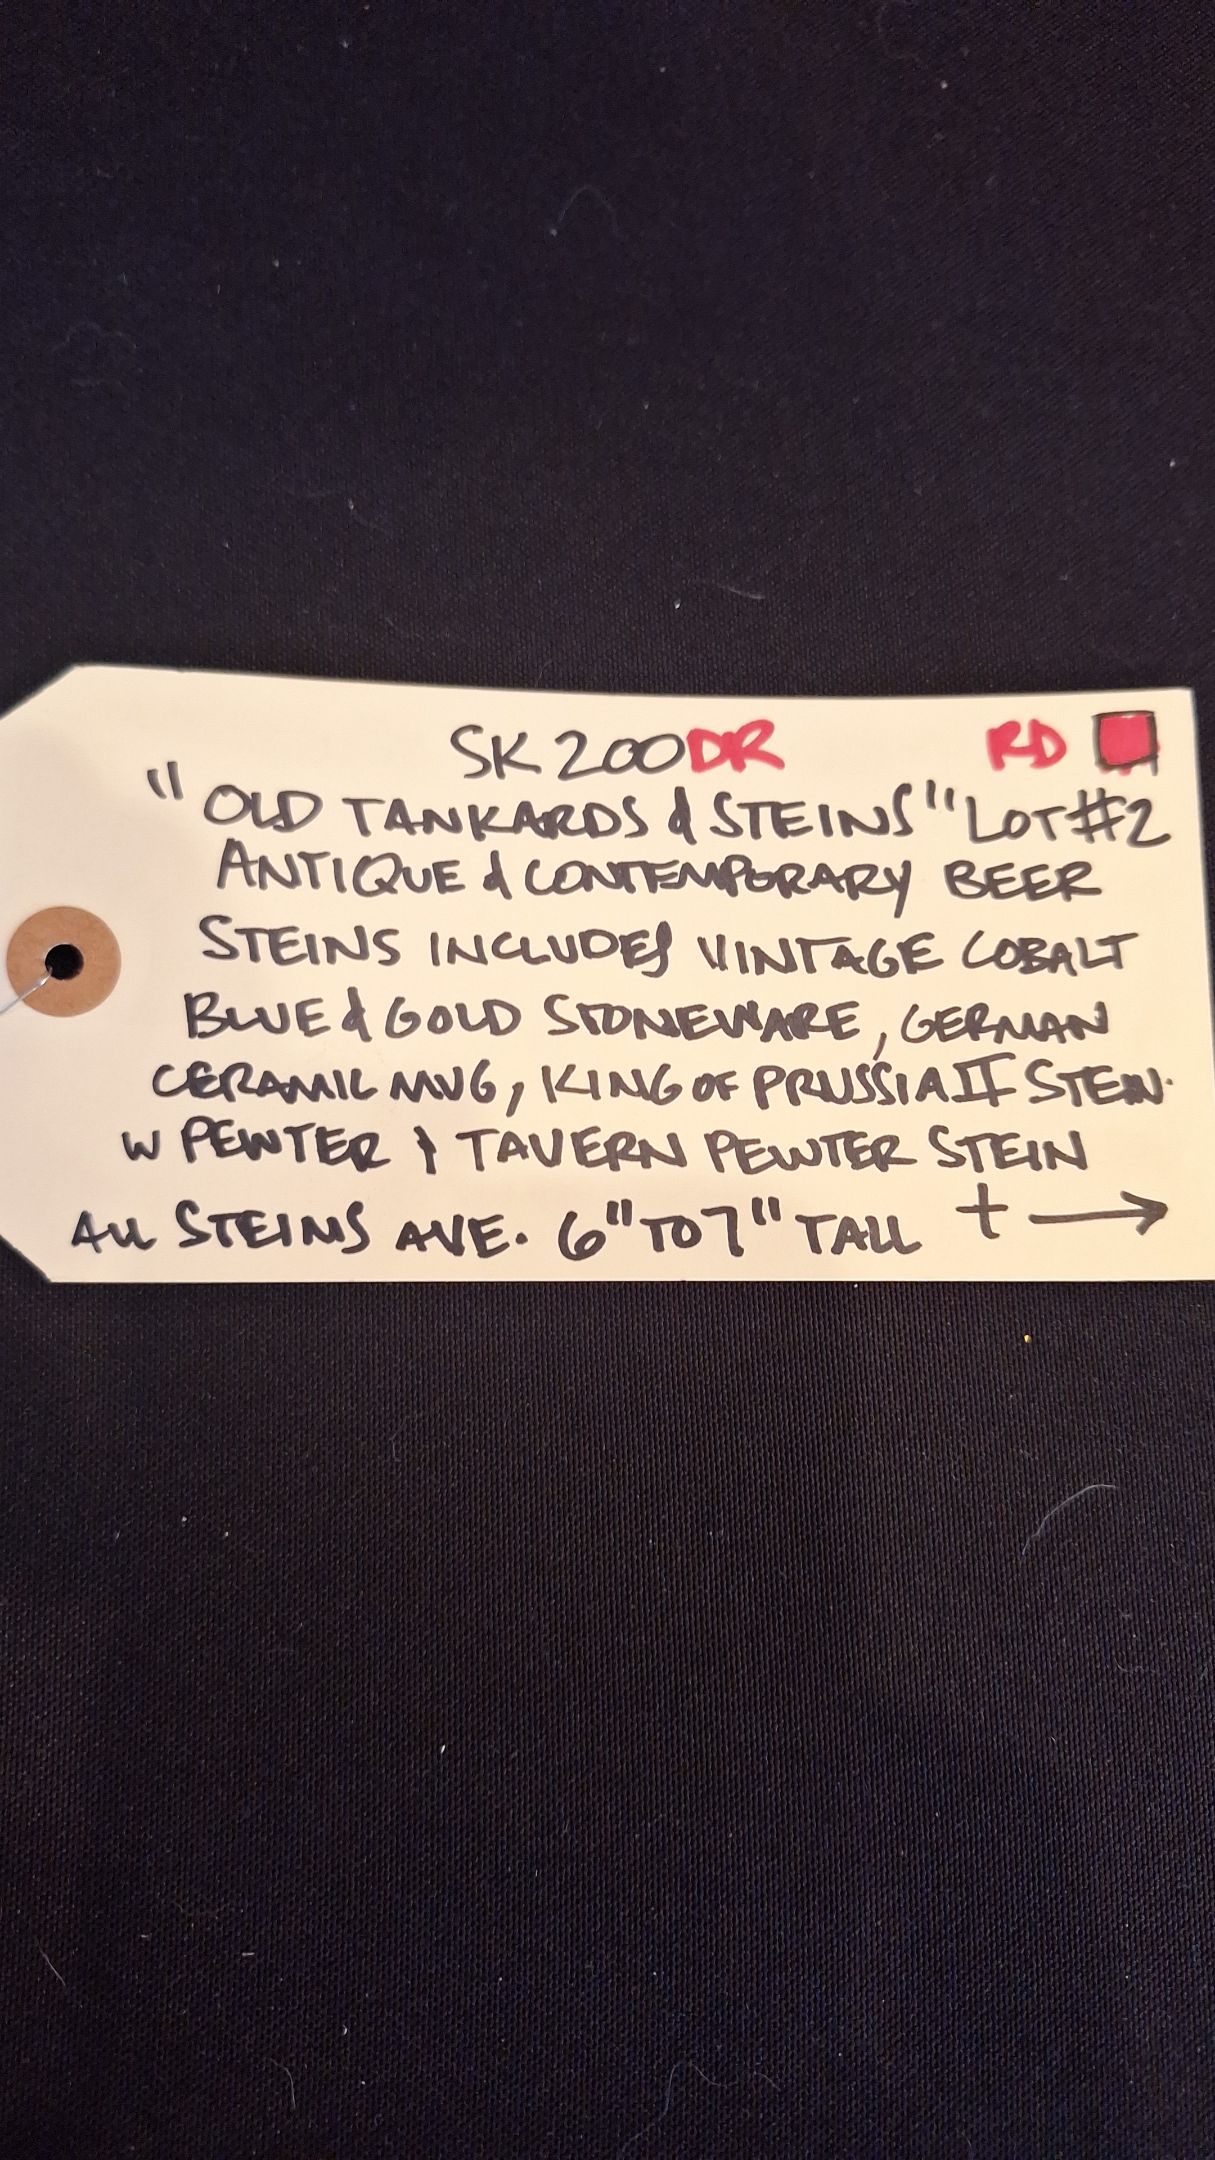 SK200DR RD
"OLD TANKARDS & STEINS" LOT #2
ANTIQUE & CONTEMPORARY BEER
STEINS INCLUDES VINTAGE COBALT
BLUE & GOLD STONEWARE, GERMAN
CERAMIC MUG, KING OF PRUSSIA II STEIN.
W PEWTER & TAVERN PEWTER STEIN
ALL STEINS AVE. 6" TO 7" TALL + →